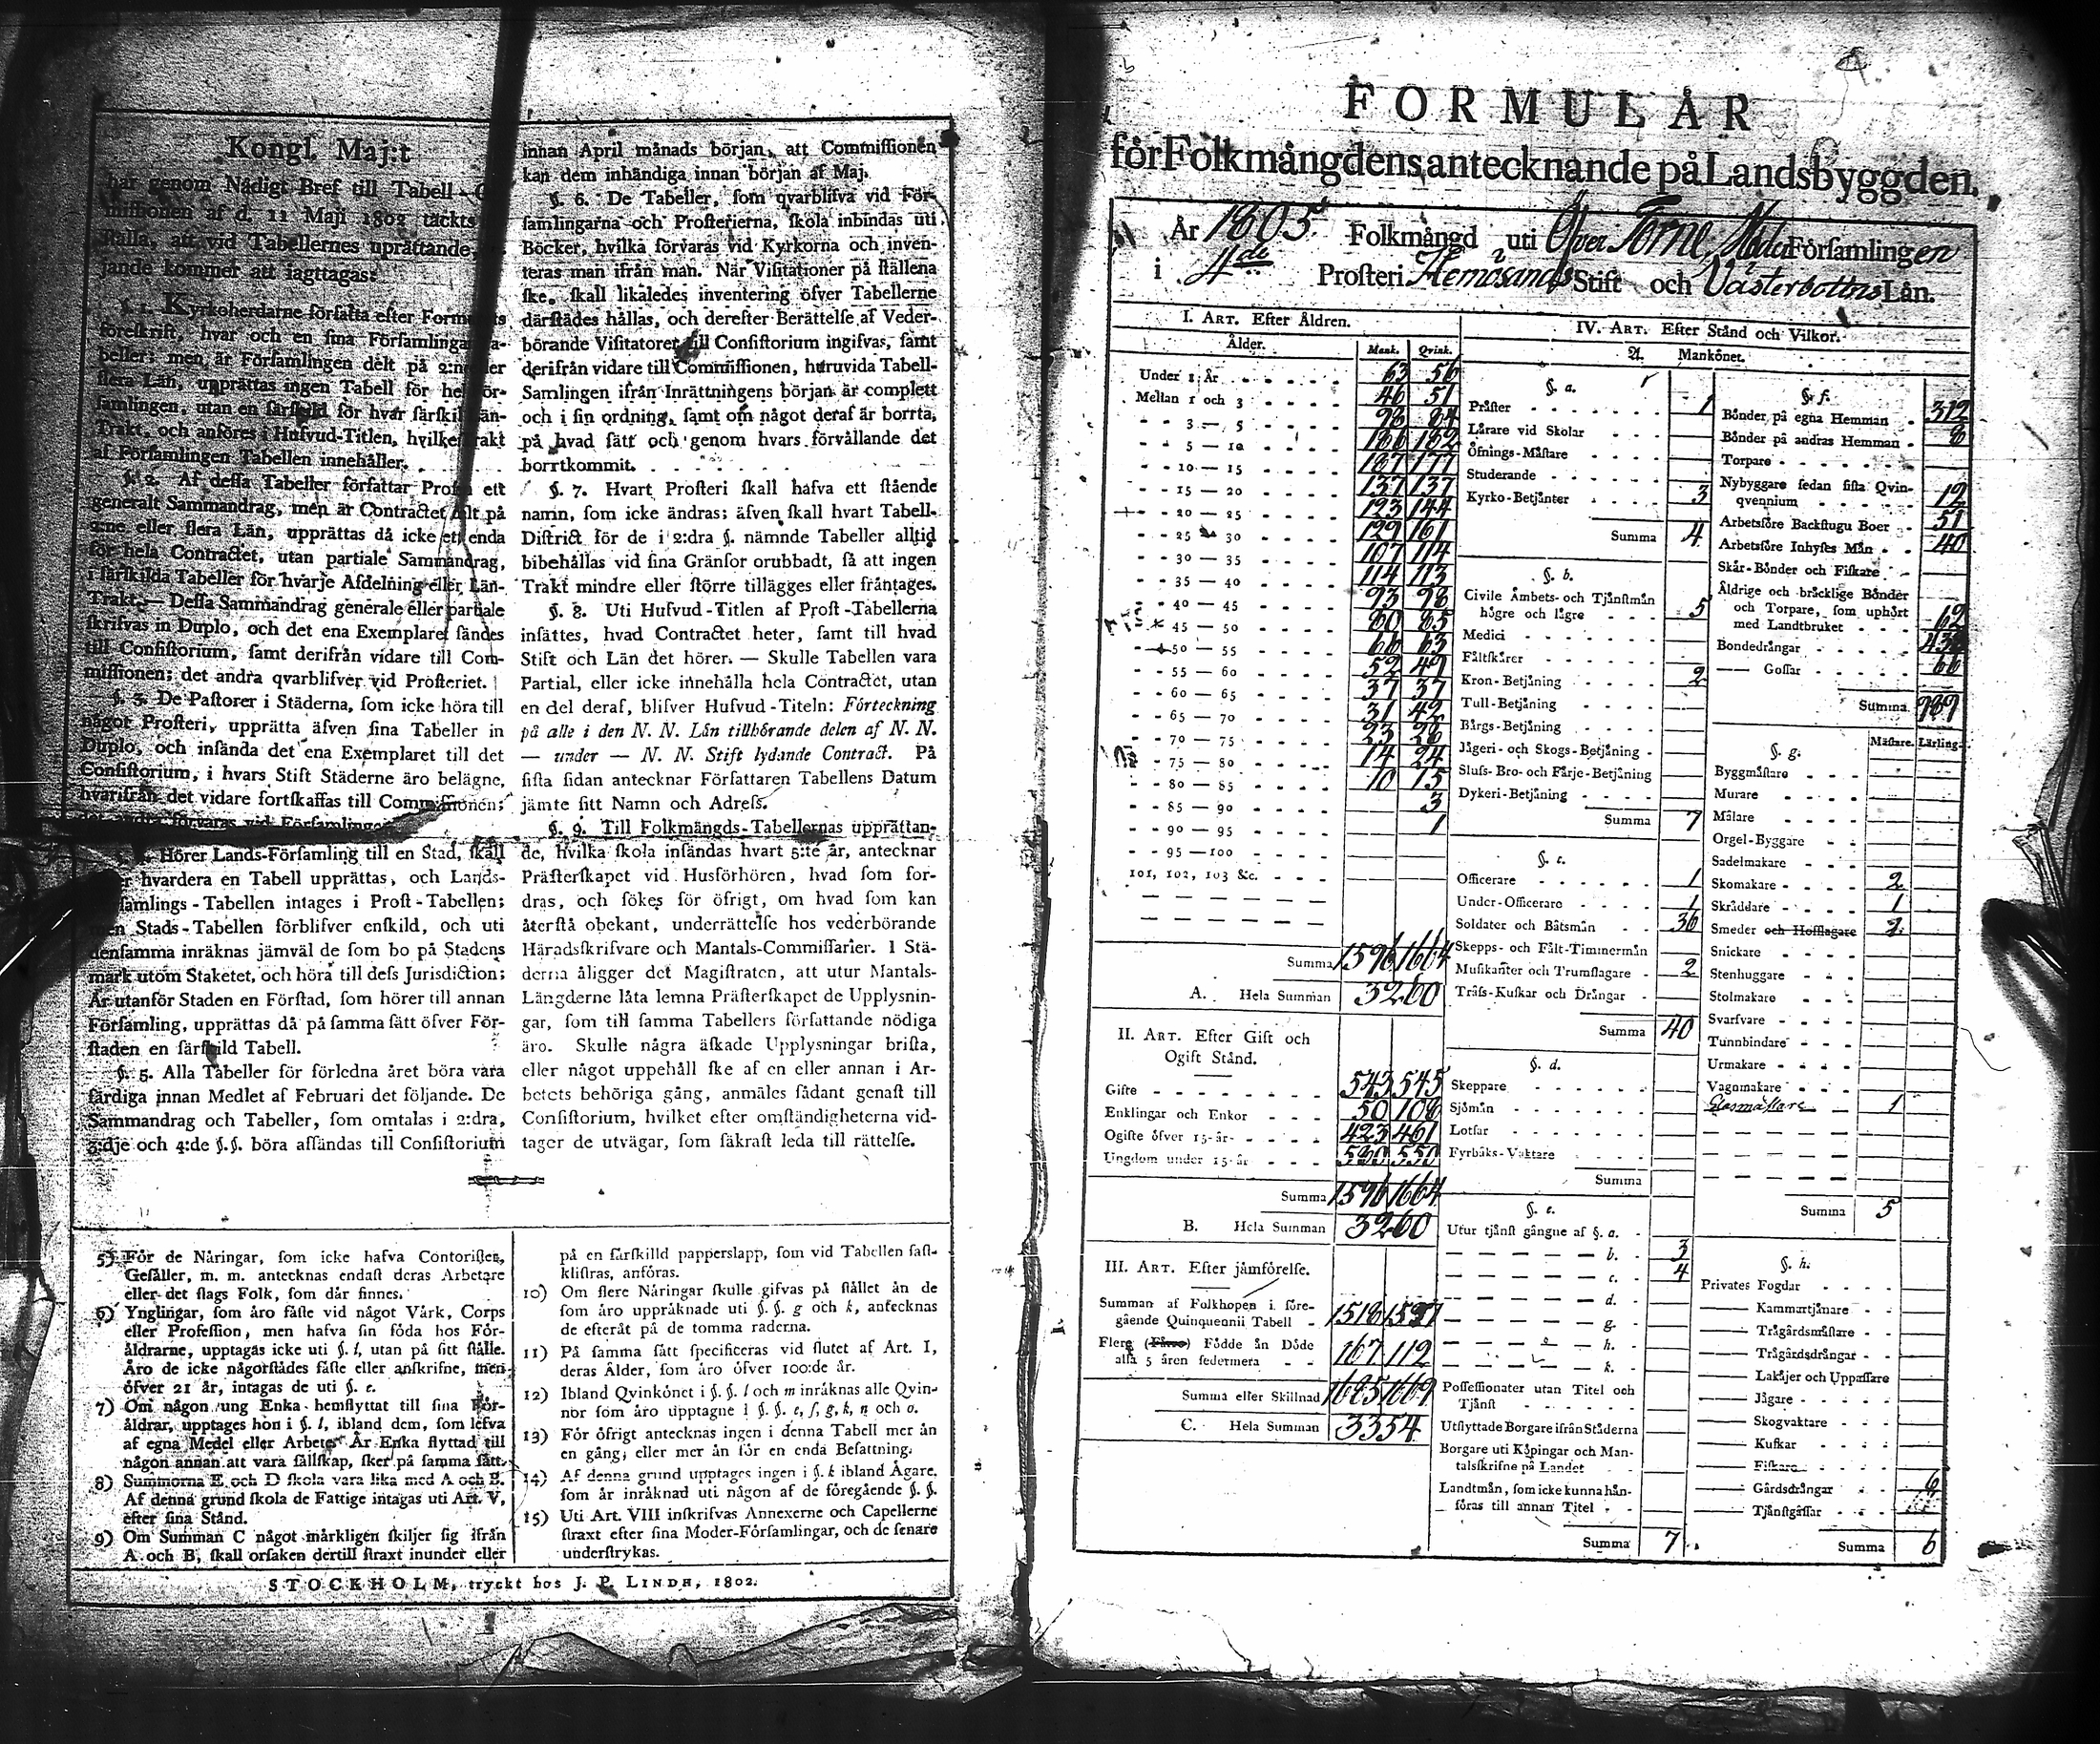 Kongl. Maj:t
har genom Nådigt Bref till Tabell-
missionen af d. 11 Maji 1802 täckts
ställa, att vid Tabellernes upprättande,
jande kommer att iagttagas:
§. 1. Kyrkoherdarne författa efter
föreskrift, hvar och en sina Församlingar
beller; men är Församlingen delt på
flera Län, upprättas ingen Tabell för
samlingen, utan en särskild för hvar särskil
Trakt, och anföres i Hufvud-Titlen, hvilken Trakt
af Församlingen Tabellen innehåller.
§. 2. Af dessa Tabeller författar ett
generalt Sammandrag, men är Contractet delt på
2:ne eller flera Län, upprättas då icke ett enda
för hela Contractet, utan partiale Sammandrag,
i särskilda Tabeller för hvarje Afdelning eller Län-
Trakt. — Dessa Sammandrag generale eller partiale
skrifvas in Duplo, och det ena Exemplaret sändes
till Consistorium, samt derifrån vidare till Com-
missionen; det andra qvarblifver vid Prosteriet.
§. 3. De Pastorer i Städerna, som icke höra till
något Prosteri, upprätta äfven sina Tabeller in
Duplo, och insända det ena Exemplaret till det
Consistorium, i hvars Stift Städerne äro belägne,
hvarifrån det vidare fortskaffas till Commissionen;
förvaras vid
Hörer Lands-Församling till en Stad, skall
hvardera en Tabell upprättas, och Lands-
samlings-Tabellen intages i Prost-Tabellen;
men Stads-Tabellen förblifver enskild, och uti
densamma inräknas jämväl de som bo på Stadens
mark utom Staketet, och höra till dess Jurisdiction;
Är utanför Staden en Förstad, som hörer till annan
Församling, upprättas då på samma sätt öfver För-
staden en särskild Tabell.
§. 5. Alla Tabeller för förledna året böra vara
färdiga innan Medlet af Februari det följande. De
Sammandrag och Tabeller, som omtalas i 2:dra,
3:dje och 4:de §.§. böra afsändas till Consistorium
innan April månads början, att Commissionen
kan dem inhändiga innan början af Maj.
§. 6. De Tabeller, som qvarblifva vid För-
samlingarna och Prosterierna, skola inbindas uti
Böcker, hvilka förvaras vid Kyrkorna och inven-
teras man ifrån man. När Visitationer på ställena
ske, skall likaledes inventering öfver Tabellerne
därstädes hållas, och derefter Berättelse af Veder-
börande Visitatorer till Consistorium ingifvas, samt
derifrån vidare till Commissionen, huruvida Tabell-
Samlingen ifrån Inrättningens början är complett
och i sin ordning, samt om något deraf är borrta,
på hvad sätt och genom hvars förvållande det
borrtkommit.
§. 7. Hvart Prosteri skall hafva ett stående
namn, som icke ändras; äfven skall hvart Tabell-
District för de i 2:dra §. nämnde Tabeller alltid
bibehållas vid sina Gränsor orubbadt, så att ingen
Trakt mindre eller större tillägges eller fråntages.
§. 8. Uti Hufvud-Titlen af Prost-Tabellerna
insättes, hvad Contractet heter, samt till hvad
Stift och Län det hörer. — Skulle Tabellen vara
Partial, eller icke innehålla hela Contractet, utan
en del deraf, blifver Hufvud-Titeln: Förteckning
på alle i den N. N. Län tillhörande delen af N. N.
— under — N. N. Stift lydande Contract. På
sista sidan antecknar Författaren Tabellens Datum
jämte sitt Namn och Adress.
§. 9. Till Folkmängds-Tabellernas upprättan-
de, hvilka skola insändas hvart 5:te år, antecknar
Prästerskapet vid Husförhören, hvad som for-
dras, och sökes för öfrigt, om hvad som kan
återstå obekant, underrättelse hos vederbörande
Häradsskrifvare och Mantals-Commissarier. I Stä-
derna åligger det Magistraten, att utur Mantals-
Längderne låta lemna Prästerskapet de Upplysnin-
gar, som till samma Tabellers författande nödiga
äro. Skulle några äskade Upplysningar brista,
eller något uppehåll ske af en eller annan i Ar-
betets behöriga gång, anmäles sådant genast till
Consistorium, hvilket efter omständigheterna vid-
tager de utvägar, som säkrast leda till rättelse.
5) För de Näringar, som icke hafva Contorister,
Gesäller, m. m. antecknas endast deras Arbetare
eller det slags Folk, som där finnes.
6) Ynglingar, som äro fäste vid något Värk, Corps
eller Profession, men hafva sin föda hos För-
äldrarne, upptagas icke uti §. l, utan på sitt ställe.
Äro de icke någorstädes fäste eller anskrifne, men
öfver 21 år, intagas de uti §. e.
7) Om någon ung Enka hemflyttat till sina För-
äldrar, upptages hon i §. l, ibland dem, som lefva
af egna Medel eller Arbete. Är Enka flyttad till
någon annan att vara sällskap, sker på samma sätt.
8) Summorna E och D skola vara lika med A och B.
Af denna grund skola de Fattige intagas uti Art. V,
efter sina Stånd.
9) Om Summan C något märkligen skiljer sig ifrån
A och B, skall orsaken dertill straxt inunder eller
på en särskilld papperslapp, som vid Tabellen fast-
klistras, anföras.
10) Om flere Näringar skulle gifvas på stället än de
som äro uppräknade uti §. §. g och k, antecknas
de efteråt på de tomma raderna.
11) På samma sätt specificeras vid slutet af Art. I,
deras Ålder, som äro öfver 100:de år.
12) Ibland Qvinkönet i §. §. l och m inräknas alle Qvin-
nor som äro upptagne i §. §. e, f, g, k, n och o.
13) För öfrigt antecknas ingen i denna Tabell mer än
en gång, eller mer än för en enda Befattning.
14) Af denna grund upptages ingen i §. k ibland Ägare,
som är inräknad uti någon af de föregående §. §.
15) Uti Art. VIII inskrifvas Annexerne och Capellerne
straxt efter sina Moder-Församlingar, och de senare
understrykas.
STOCKHOLM, tryckt hos J. P. LINDH, 1802.
FORMULÄR
för Folkmängdens antecknande på Landsbyggden.
År 1805 Folkmängd uti Öfver Torne, Moder Församlingen
i 4de Prosteri Hernösands Stift och Västerbottns Län.
I. ART. Efter Åldren.
Ålder. Mank. Qvink.
Under 1 År 63 56
Mellan 1 och 3 46 51
3 — 5 98 84
5 — 10 186 182
10 — 15 187 177
15 — 20 137 137
20 — 25 123 144
25 — 30 129 161
30 — 35 107 114
35 — 40 114 113
40 — 45 93 98
45 — 50 80 85
50 — 55 66 63
55 — 60 52 49
60 — 65 37 37
65 — 70 31 42
70 — 75 23 28
75 — 80 14 24
80 — 85 10 15
85 — 90 3
90 — 95 1
95 — 100
101, 102, 103 &c.
Summa 1596 1664
A. Hela Summan 3260
II. ART. Efter Gift och
Ogift Stånd.
Gifte 543 545
Enklingar och Enkor 50 108
Ogifte öfver 15 år 423 461
Ungdom under 15 år 580 550
Summa 1596 1664
B. Hela Summan 3260
III. ART. Efter jämförelse.
Summan af Folkhopen i före-
gående Quinquennii Tabell 1518 1557
Flere (Färre) Födde än Döde
alla 5 åren sedermera 167 112
Summa eller Skillnad 1685 1669
C. Hela Summan 3354
IV. ART. Efter Stånd och Vilkor.
A. Mankönet.
§. a.
Präster 1
Lärare vid Skolar
Öfnings-Mästare
Studerande
Kyrko-Betjänter 3
Summa 4
§. b.
Civile Ämbets- och Tjänstmän
högre och lägre 5
Medici
Fältskärer
Kron-Betjäning 2
Tull-Betjäning
Bärgs-Betjäning
Jägeri- och Skogs-Betjäning
Sluss- Bro- och Färje-Betjäning
Dykeri-Betjäning
Summa 7
§. c.
Officerare 1
Under-Officerare 1
Soldater och Båtsmän 36
Skepps- och Fält-Timmermän
Musikanter och Trumslagare 2
Träss-Kuskar och Drängar
Summa 40
§. d.
Skeppare
Sjömän
Lotsar
Fyrbåks-Vaktare
Summa
§. e.
Utur tjänst gångne af §. a.
b. 3
c. 4
d.
g.
h.
k.
Possessionater utan Titel och
Tjänst
Utflyttade Borgare ifrån Städerna
Borgare uti Köpingar och Man-
talsskrifne på Landet
Landtmän, som icke kunna hän-
föras till annan Titel
Summa 7
§. f.
Bönder på egna Hemman 312
Bönder på andras Hemman 8
Torpare
Nybyggare sedan sista Qvin-
qvennium 12
Arbetsföre Backstugu Boer 51
Arbetsföre Inhyses Män 40
Skär-Bönder och Fiskare
Äldrige och bräcklige Bönder
och Torpare, som uphört
med Landtbruket 62
Bondedrängar
— Gossar 66
Summa
§. g. Mästare. Lärling.
Byggmästare
Murare
Målare
Orgel-Byggare
Sadelmakare
Skomakare 2
Skräddare 1
Smeder och Hofslagare
Snickare
Stenhuggare
Stolmakare
Svarfvare
Tunnbindare
Urmakare
Vagnmakare
Glasmästare 1
Summa 5
§. h.
Privates Fogdar
— Kammartjänare
— Trägårdsmästare
— Trägårdsdrängar
— Lakäjer och Uppassare
— Jägare
— Skogvaktare
— Kuskar
— Fiskare
— Gårdsdrängar 6
— Tjänstgåssar
Summa 6